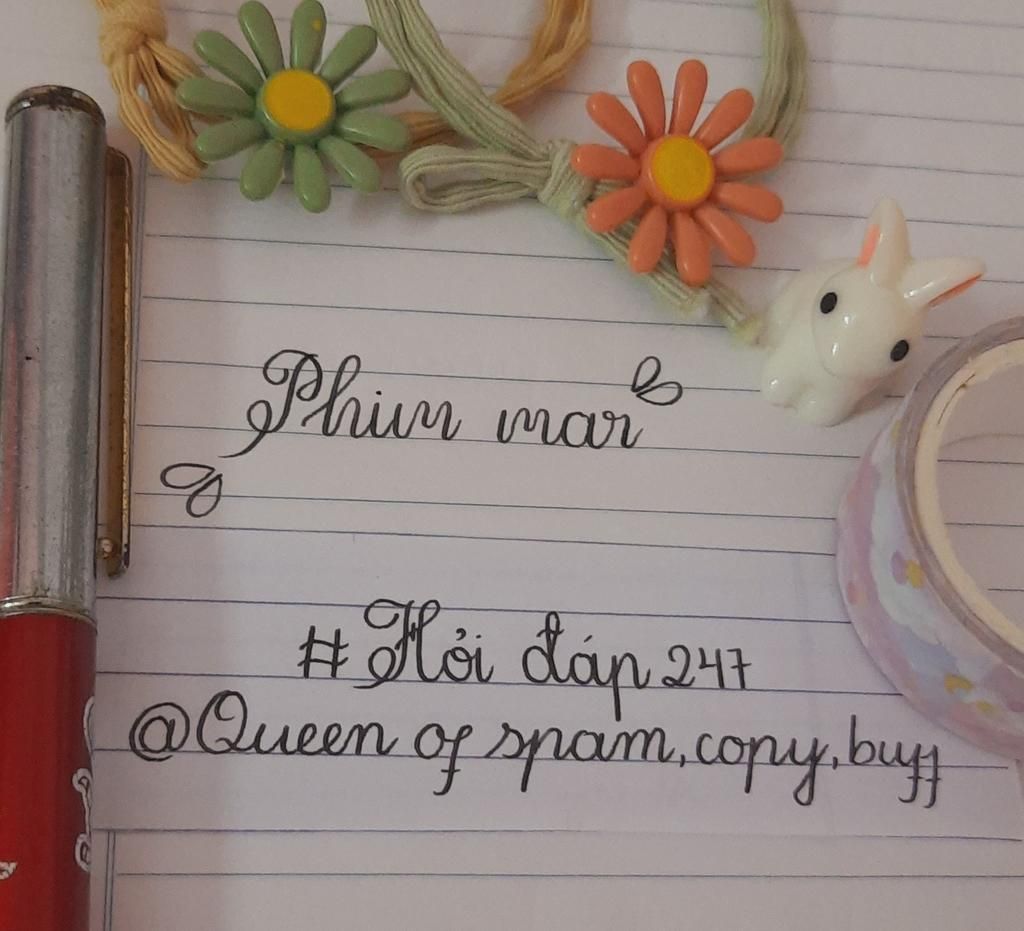 Phim mar
#Hỏi đáp 247
@Queen of spam, copy, buff